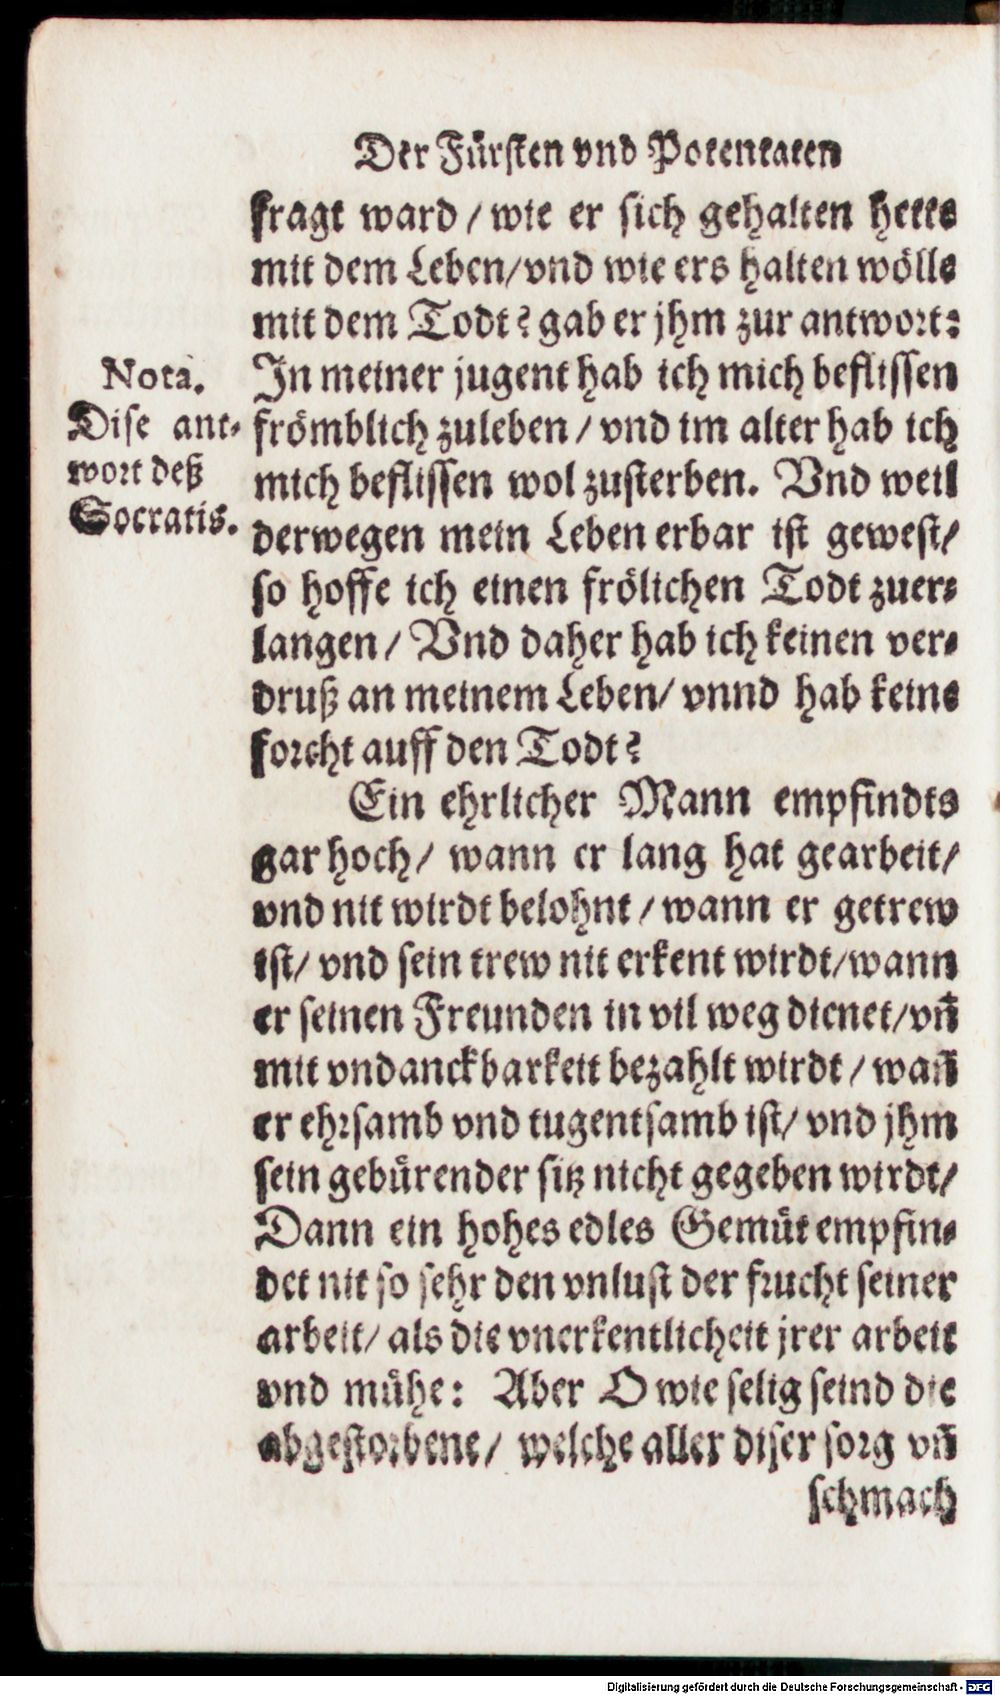 Der Fürsten vnd Potentaten
fragt ward / wie er sich gehalten hette
mit dem Leben/vnd wie ers halten wölle
mit dem Todt? gab er jhm zur antwort:
In meiner jugent hab ich mich beflissen
frömblich zuleben / vnd im alter hab ich
mich beflissen wol zusterben. Vnd weil
derwegen mein Leben erbar ist gewest/
so hoffe ich einen frölichen Todt zuer-
langen / Vnd daher hab ich keinen ver-
druß an meinem Leben/ vnnd hab keine
forcht auff den Todt?
Nota.
Dise ant-
wort deß
Socratis.
Ein ehrlicher Mann empfindts
gar hoch / wann er lang hat gearbeit/
vnd nit wirdt belohnt / wann er getrew
ist/ vnd sein trew nit erkent wirdt/wann
er seinen Freunden in vil weg dienet/vñ
mit vndanckbarkeit bezahlt wirdt / wañ
er ehrsamb vnd tugentsamb ist/ vnd jhm
sein gebürender sitz nicht gegeben wirdt/
Dann ein hohes edles Gemüt empfin-
det nit so sehr den vnlust der frucht seiner
arbeit/ als die vnerkentlicheit jrer arbeit
vnd mühe: Aber O wie selig seind die
abgestorbene/ welche aller diser sorg vñ
schmach
Digitalisierung gefördert durch die Deutsche Forschungsgemeinschaft - DFG